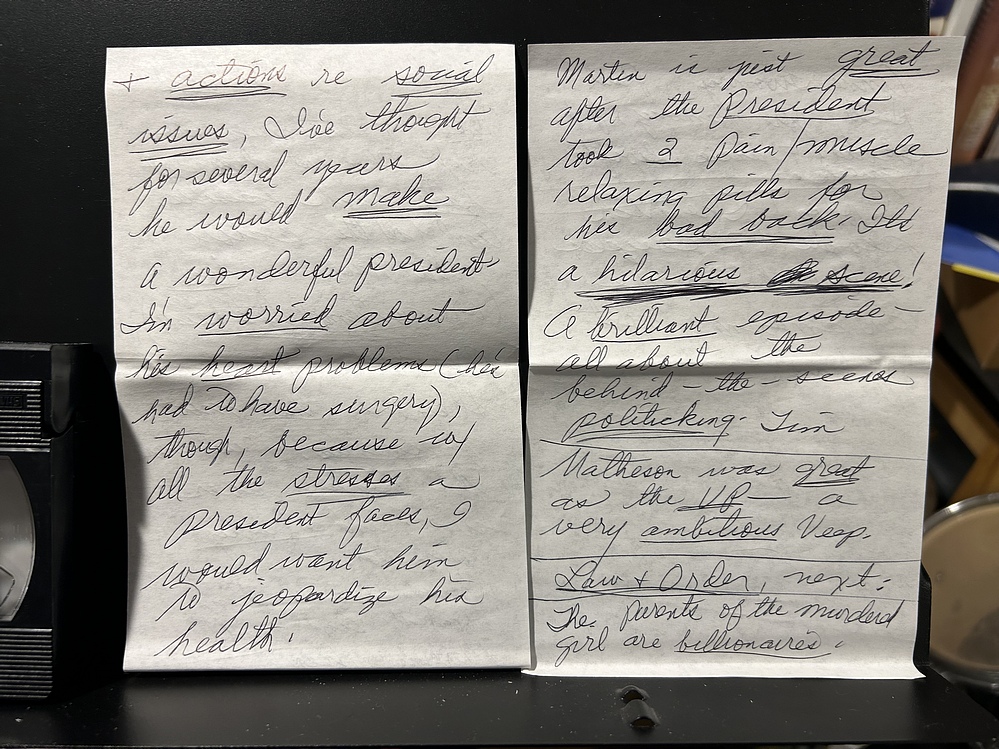 + actions re social
issues, I've thought
for several years
he would make
a wonderful president.
I'm worried about
his heart problems (he's
had to have surgery),
though, because w/
all the stresses a
president faces, I
would want him
to jeopardize his
health.
Marten is just great
after the President
took 2 pain/muscle
relaxing pills for
his bad back. Its
a hilarious scene!
A brilliant episode -
all about the
behind-the-scenes
politicking. Tim
Matheson was great
as the VP - a
very ambitious Veep.
Law + Order, next:
The parents of the murderd
girl are billionaires.